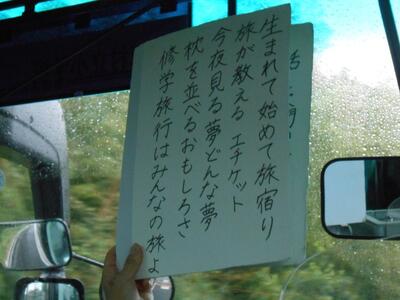 生まれて始めて旅宿り
旅が教える エチケット
今夜見る夢どんな夢
枕を並べるおもしろさ
修学旅行はみんなの旅よ